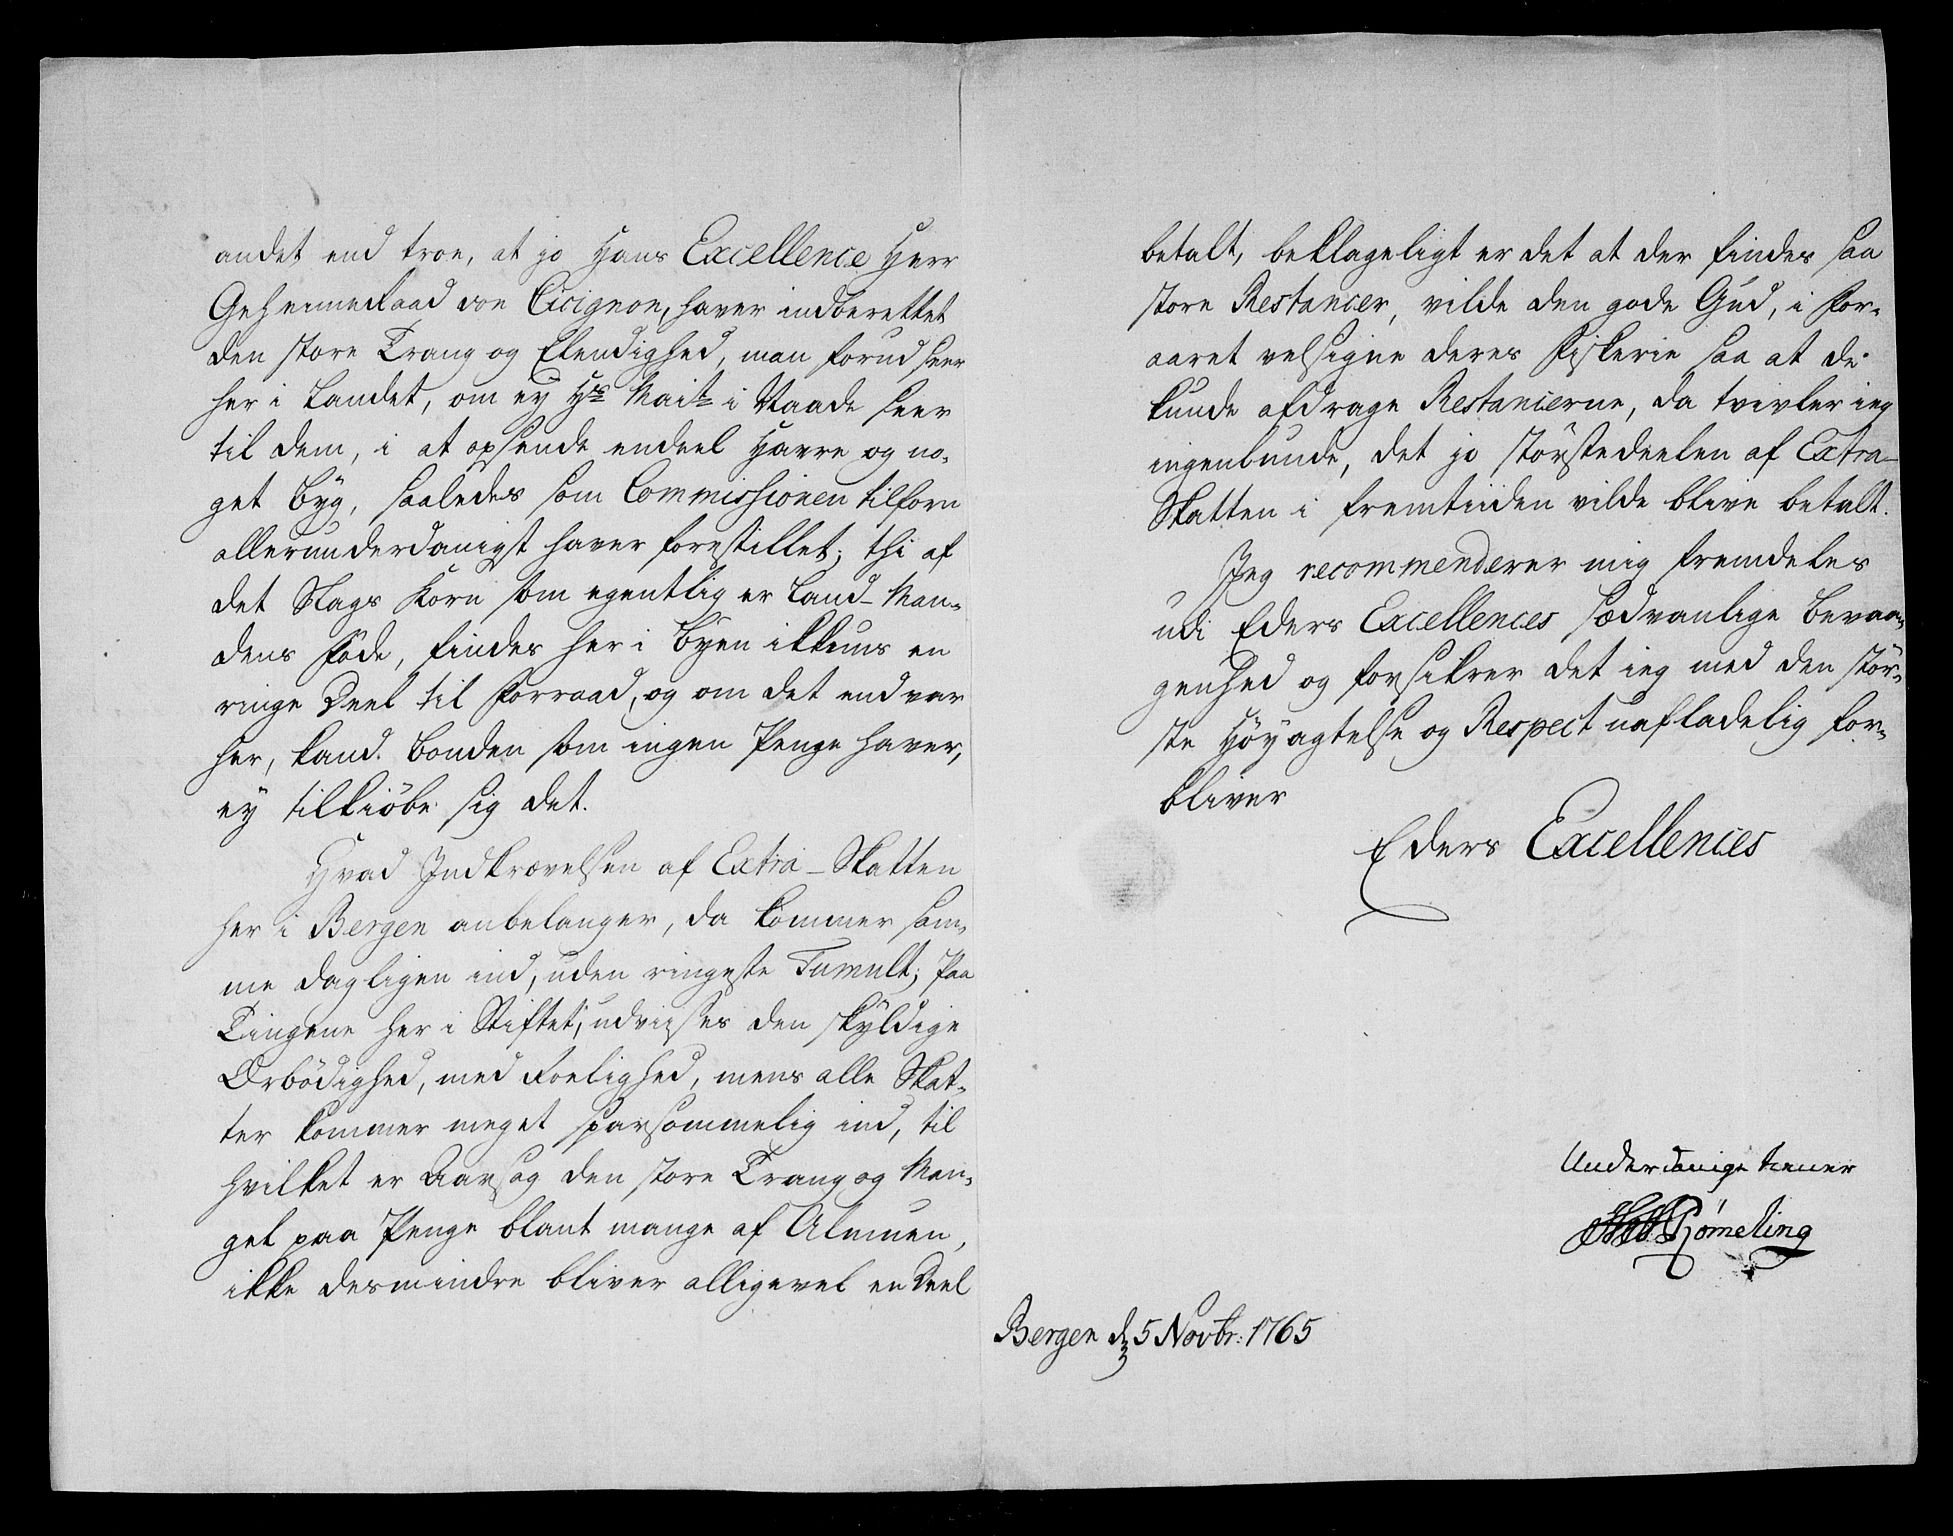 andet end troe, at jo Hans Excellence Herr
Geheimeraad von Cicignon, haver indberettet
den store Trang og Elendighed, man forud seer
her i Landet, om ey Hs Maits i Naade seer
til dem, i at opsende endeel Havre og no-
get Byg, saaledes som Commissionen tilforn
allerunderdanigst haver forestillet; thi af
det Slags Korn som egentlig er Land-Man-
dens Føde, findes her i Byen ikkuns en
ringe Deel til Forraad, og om det end var
her, kand Bonden som ingen Penge haver,
ey tilkiöbe sig det.
Hvad Indkrævelsen af Extra-Skatten
her i Bergen anbelanger, da kommer sam-
me dagligen ind, uden ringeste Tumult; Paa
Tingene her i Stiftet, udviises den skyldige
Ærbödighed, med Roelighed, mens alle Skat-
ter kommer meget sparsommelig ind, til
hvilket er Aarsag den store Trang og Man-
gel paa Penge blant mange af Almuen,
ikke desmindre bliver alligevel en Deel
betalt, beklageligt er det at der findes saa
store Restancer, vilde den gode Gud, i For-
aaret velsigne deres Fiskerie saa at de
kunde afdrage Restancerne, da tvivler ieg
ingenlunde, det jo störstedeelen af Extra-
Skatten i fremtiiden vilde blive betalt.
Jeg recommenderer mig fremdeles
udi Eders Excellences sædvanlige Bevaa-
genhed og forsikrer det ieg med den stör-
ste Höyagtelse og Respect uafladelig for-
bliver
Eders Excellences
Underdanige tiener
Römeling
Bergen d 5 Novbr: 1765